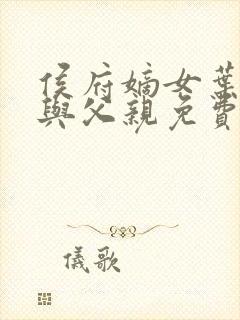 侯府嫡女葉
與父親免費
儀歌